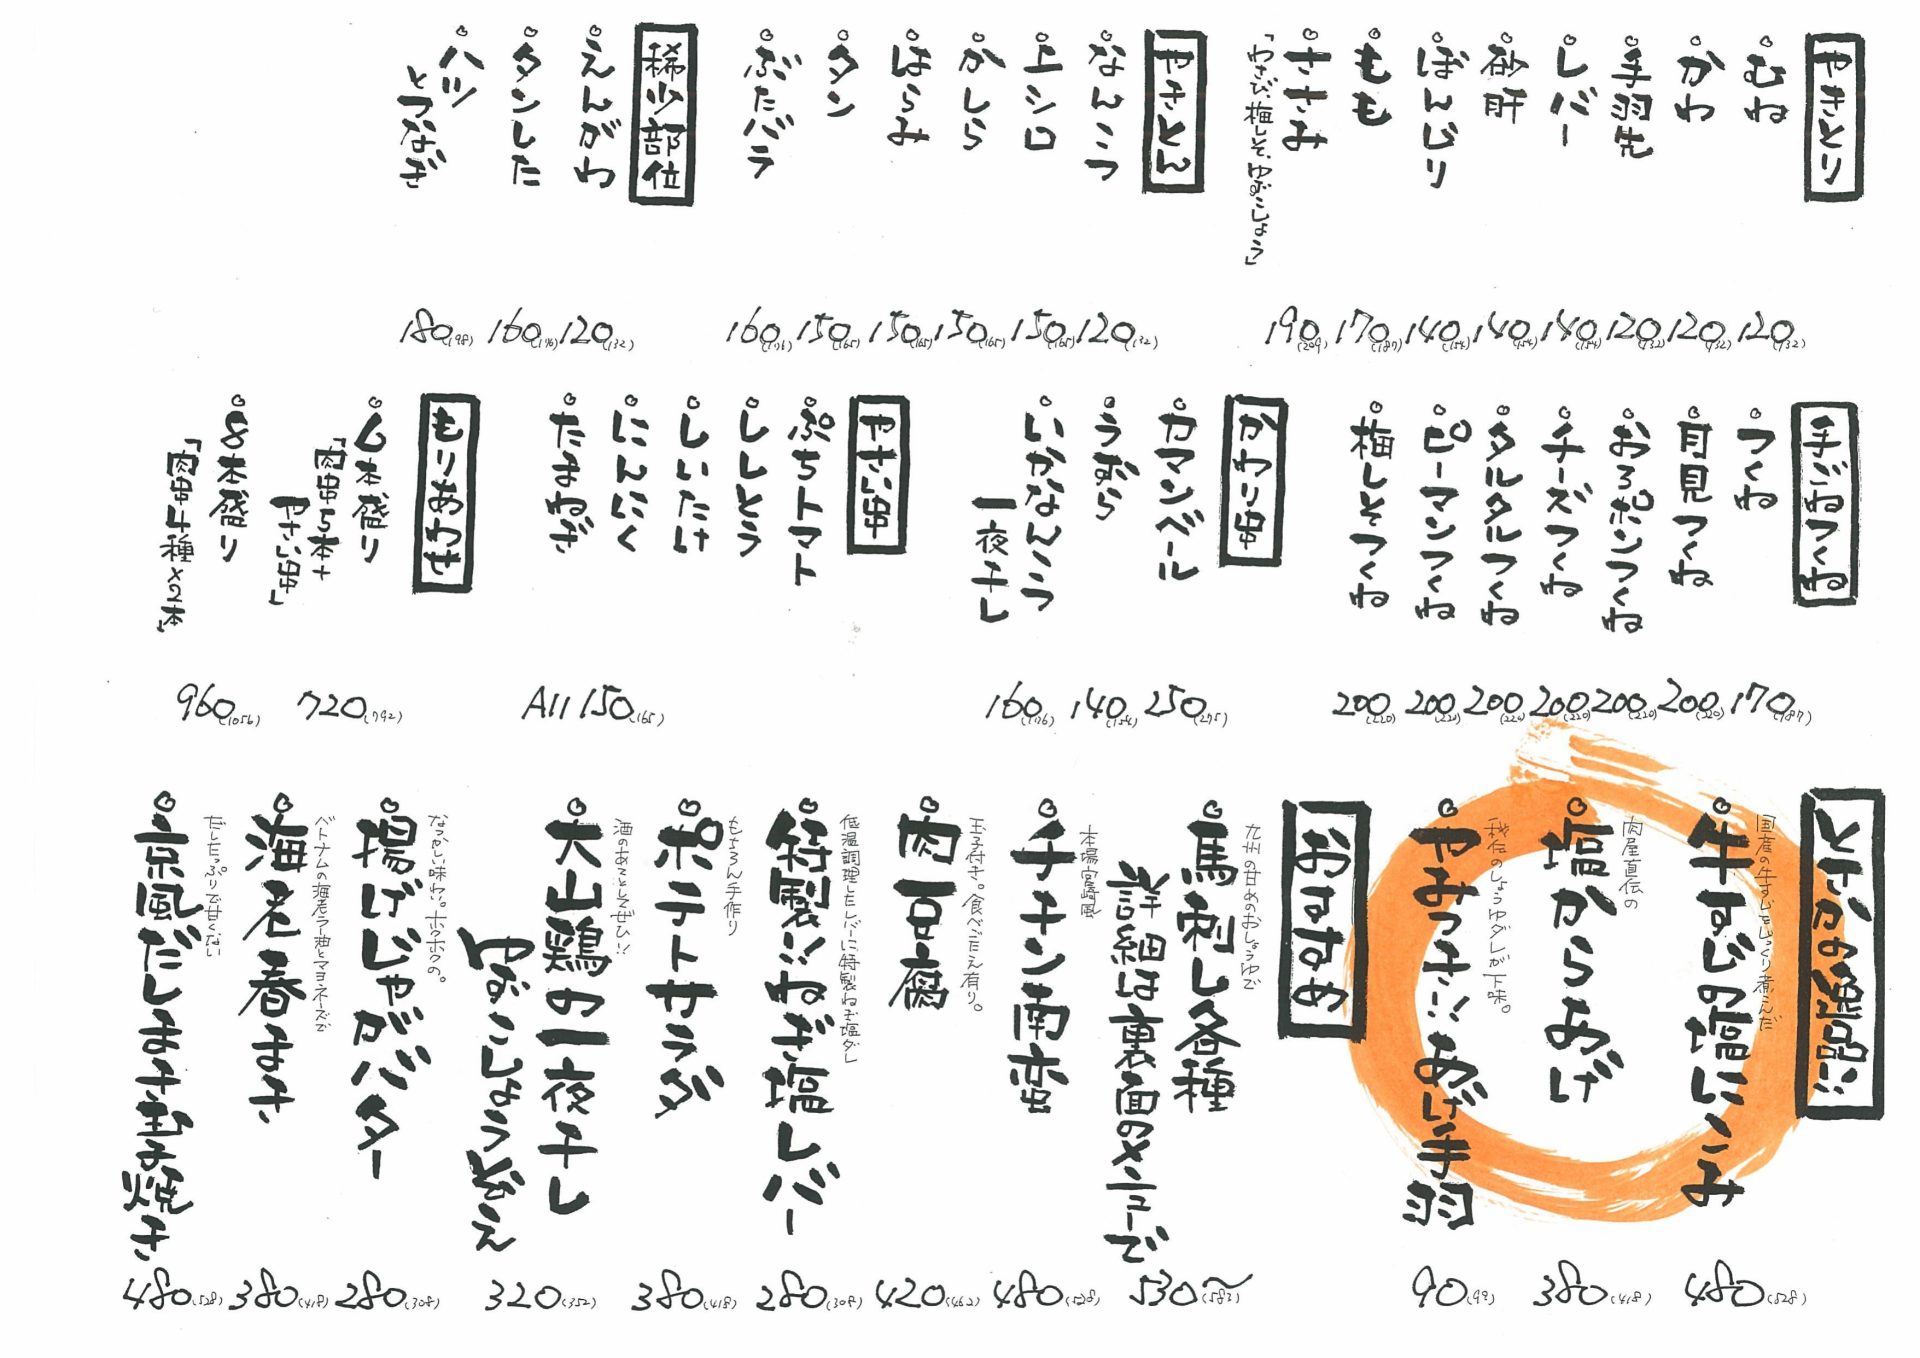 やきとり
むね 120(132)
かわ 120(132)
手羽先 120(132)
レバー 140(154)
砂肝 140(154)
ぼんじり 140(154)
もも 170(187)
ささみ 190(209)
「わさび、梅しそ、ゆずこしょう」
やきとん
なんこつ 120(132)
上シロ 150(165)
かしら 150(165)
はらみ 150(165)
タン 150(165)
ぶたバラ 160(176)
稀少部位
えんがわ 120(132)
タンした 160(176)
ハツ
とつなぎ 180(198)
手ごねつくね
つくね 170(187)
月見つくね 200(220)
おろポンつくね 200(220)
チーズつくね 200(220)
タルタルつくね 200(220)
ピーマンつくね 200(220)
梅しそつくね 200(220)
かわり串
カマンベール 250(275)
うずら 140(154)
いかなんこつ
一夜干し 160(176)
やさい串
ぷちトマト
ししとう
しいたけ
にんにく
たまねぎ
All 150(165)
もりあわせ
6本盛り 720(792)
「肉串5本+
やさい串」
8本盛り 960(1056)
「肉串4種×2本」
とりかの絶品!!
国産の牛すじをじっくり煮こんだ
牛すじの塩にこみ 480(528)
肉屋直伝の
塩からあげ 380(418)
秘伝のしょうゆダレが下味。
やみつき!!あげ手羽 90(99)
おすすめ
九州の甘めのおしょうゆで
馬刺し各種
詳細は裏面のメニューで 530〜(583)
本場宮崎風
チキン南蛮 480(528)
玉子付き。食べごたえ有り。
肉豆腐 420(462)
低温調理したレバーに特製ねぎ塩ダレ
特製!!ねぎ塩レバー 280(308)
もちろん手作り
ポテトサラダ 380(418)
酒のあてとしてぜひ!!
大山鶏の一夜干し
ゆずこしょうぞえ 320(352)
なつかしい味わい。ホクホクの。
揚げじゃがバター 280(308)
ベトナムの海老ラー油とマヨネーズで
海老春まき 380(418)
だしたっぷりで甘くない
京風だしまき玉子焼き 480(528)